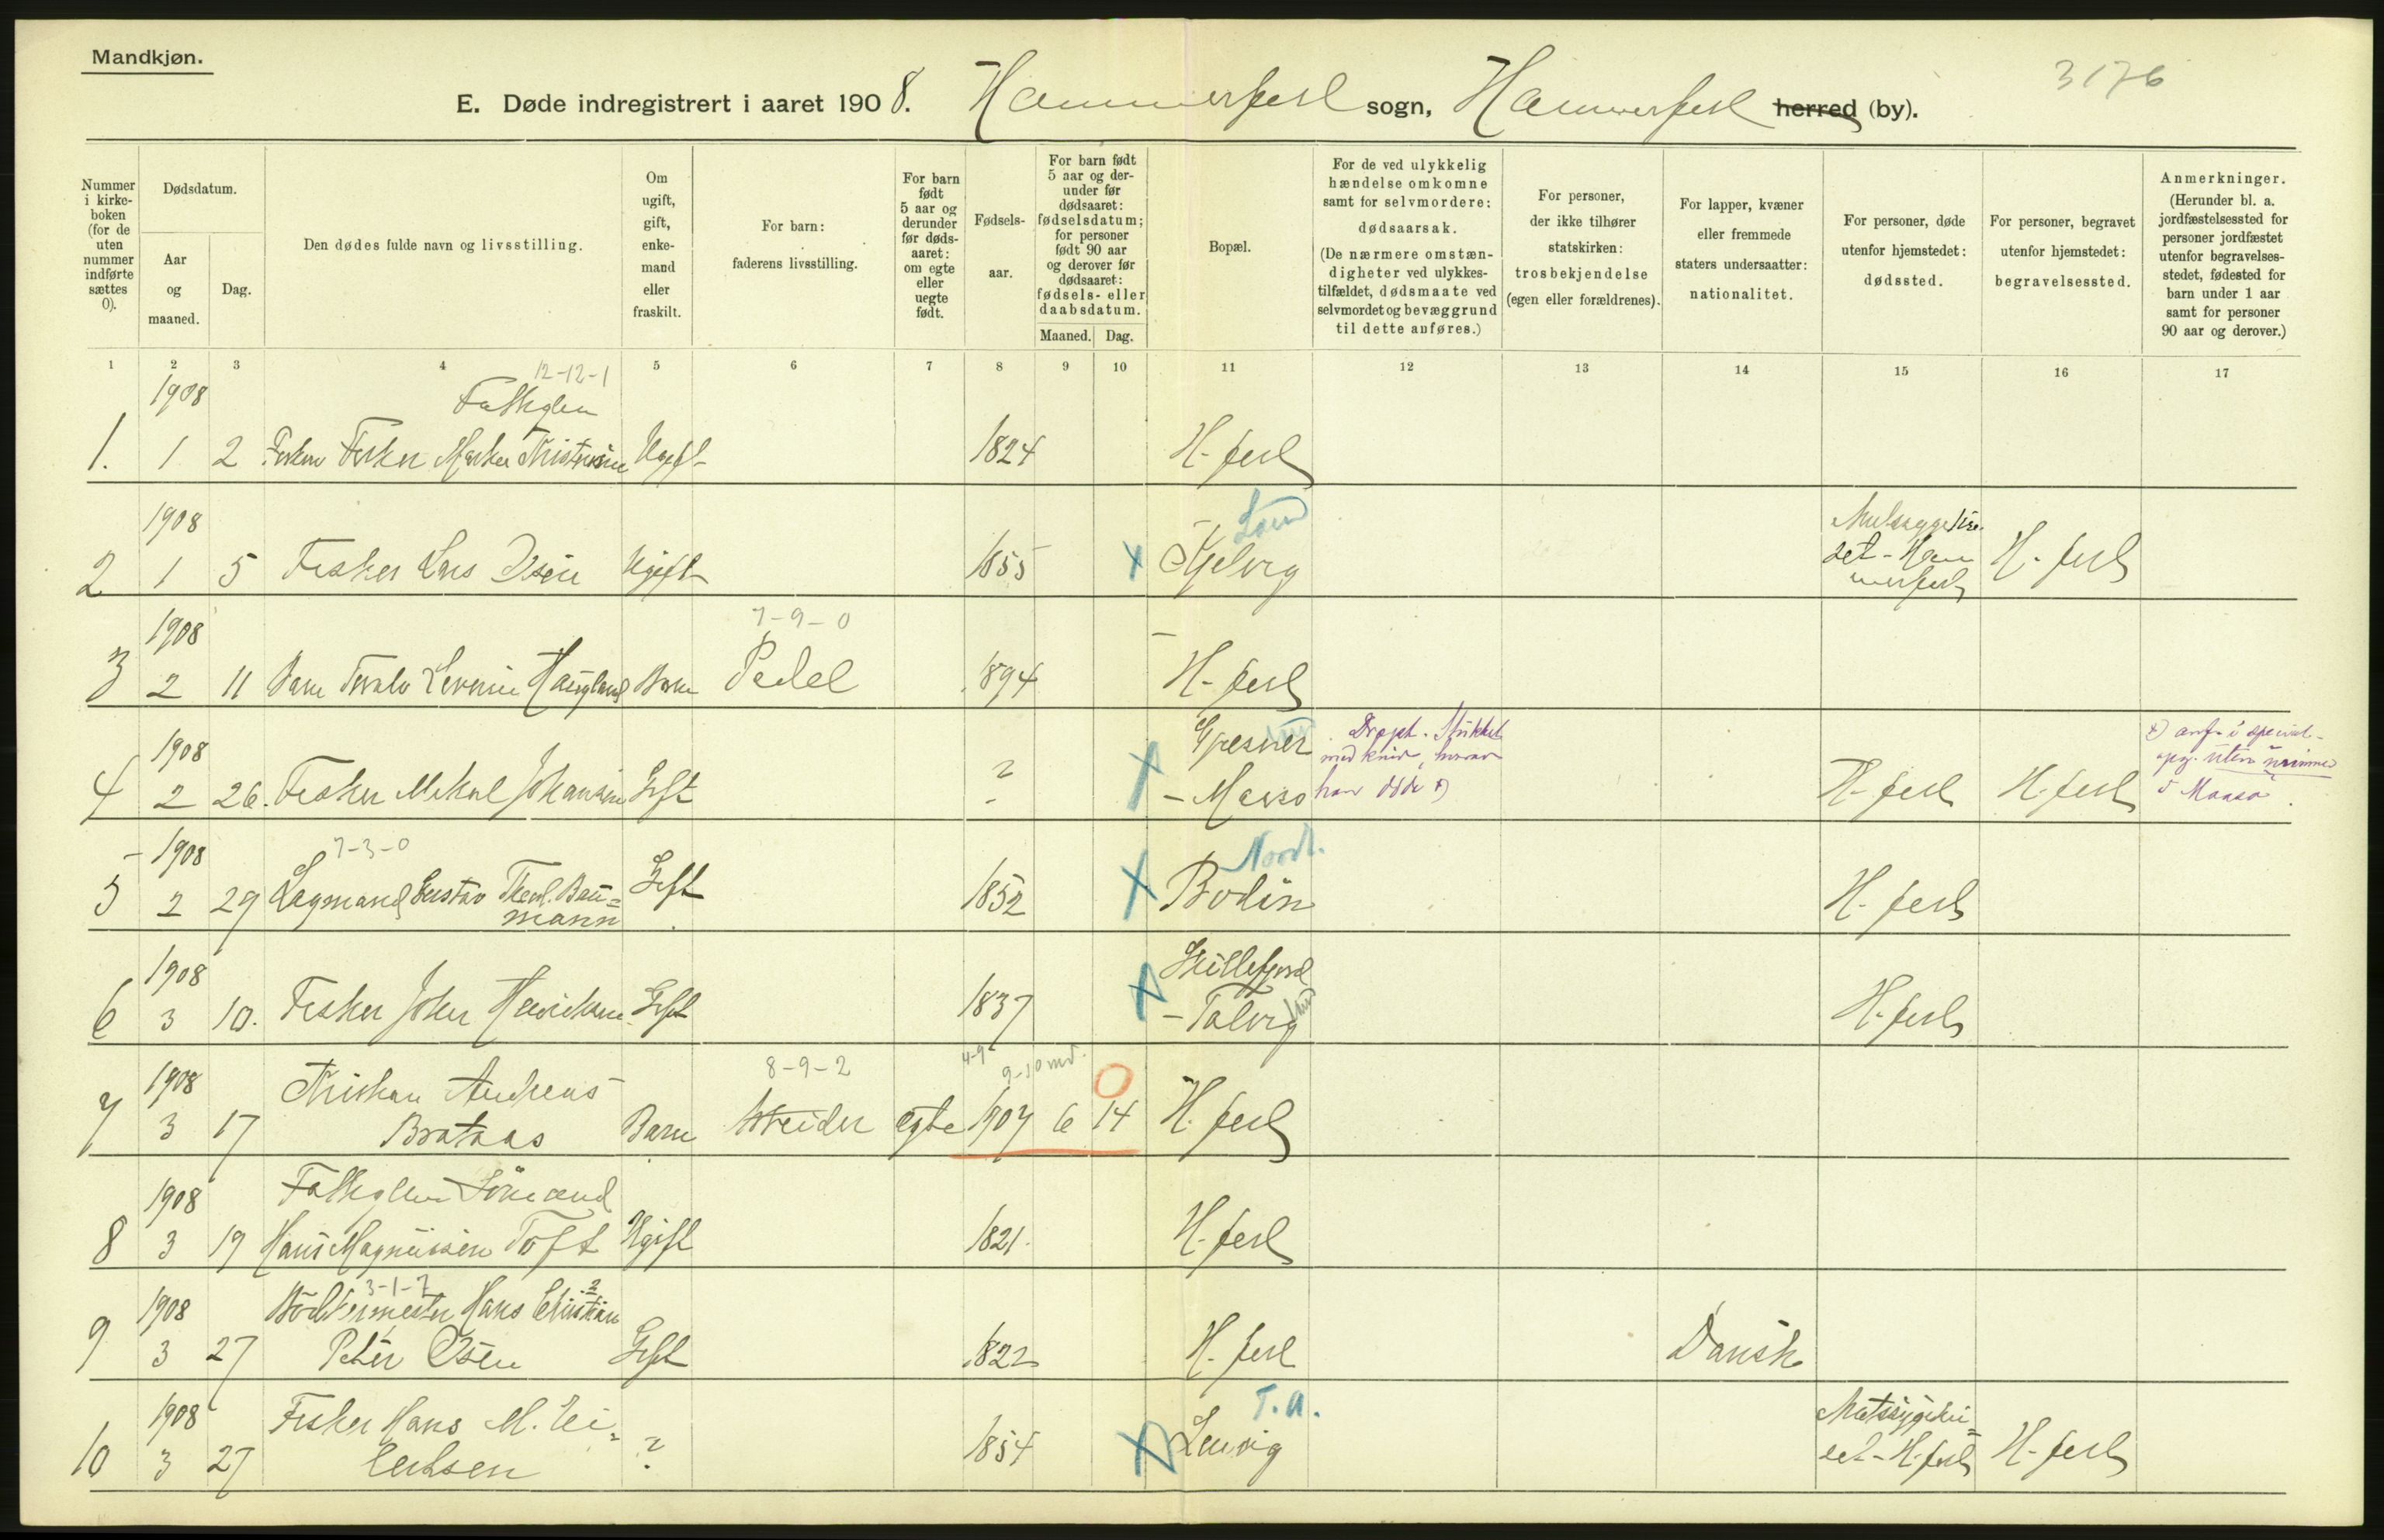 Mandkjøn.
3176
E. Døde indregistrert i aaret 1908. Hammerfest sogn, Hammerfest herred (by).
Nummer i kirke-boken (for de uten nummer indførte sættes 0).
Dødsdatum.
Aar og maaned.
Dag.
Den dødes fulde navn og livsstilling.
Om ugift, gift, enke-mand eller fraskilt.
For barn: faderens livsstilling.
For barn født 5 aar og derunder før døds-aaret: om egte eller uegte født.
Fødsels-aar.
For barn født 5 aar og der-under før dødsaaret: fødselsdatum; for personer født 90 aar og derover før dødsaaret: fødsels- eller daabsdatum.
Maaned. Dag.
Bopæl.
For de ved ulykkelig hændelse omkomne samt for selvmordere: dødsaarsak. (De nærmere omstæn-digheter ved ulykkes-tilfældet, dødsmaate ved selvmordet og bevæggrund til dette anføres.)
For personer, der ikke tilhører statskirken: trosbekjendelse (egen eller forældrenes).
For lapper, kvæner eller fremmede staters undersaatter: nationalitet.
For personer, døde utenfor hjemstedet: dødssted.
For personer, begravet utenfor hjemstedet: begravelsessted.
Anmerkninger. (Herunder bl. a. jordfæstelsessted for personer jordfæstet utenfor begravelses-stedet, fødested for barn under 1 aar samt for personer 90 aar og derover.)
1 2 3 4 5 6 7 8 9 10 11 12 13 14 15 16 17
12-12-1
1908 Fattiglem
1. 1 2 Fisker Ugift 1824 H-fest
1908 Land
2 1 5 Fisker Lars Olsen Ugift 1855 x Kjelvig H-fest
1908 7-9-0
3 2 11 Barn Haugland Barn Pedel 1894 H-fest
1908 Dræpt. Stukket med kniv, hvorav han døde x)
4 2 26. Fisker Mikal Johansen Gift ? x Gjesvær - Maasø H-fest H-fest x) anf. i special-opg. uten nummer i Maasø.
1908 7-3-0 Nordl.
5 2 29 Lagmand Gustav Theod. Bau=mann Gift 1852 x Bodin H-fest
1908 Skillefjord
6 3 10. Fisker John Henriksen Gift 1837 x - Talvig H-fest
1908 8-9-2 4-9 9-10 md.
Kristian Andreas
7 3 17 Brataas Barn Arbeider egte 1907 6 14 0 H-fest
1908 Fattiglem Sømand
8 3 19 Hans Magnussen Toft Ugift 1821. H-fest
3-1-7
1908 Bødkermester Hans Christian
9 3 27 Peter Olsen Gift 1822 H-fest Dansk
1908 Fisker Hans M. Ei= T. A.
10 3 27 lertsen ? 1854 x Lenvig H-fest H-fest